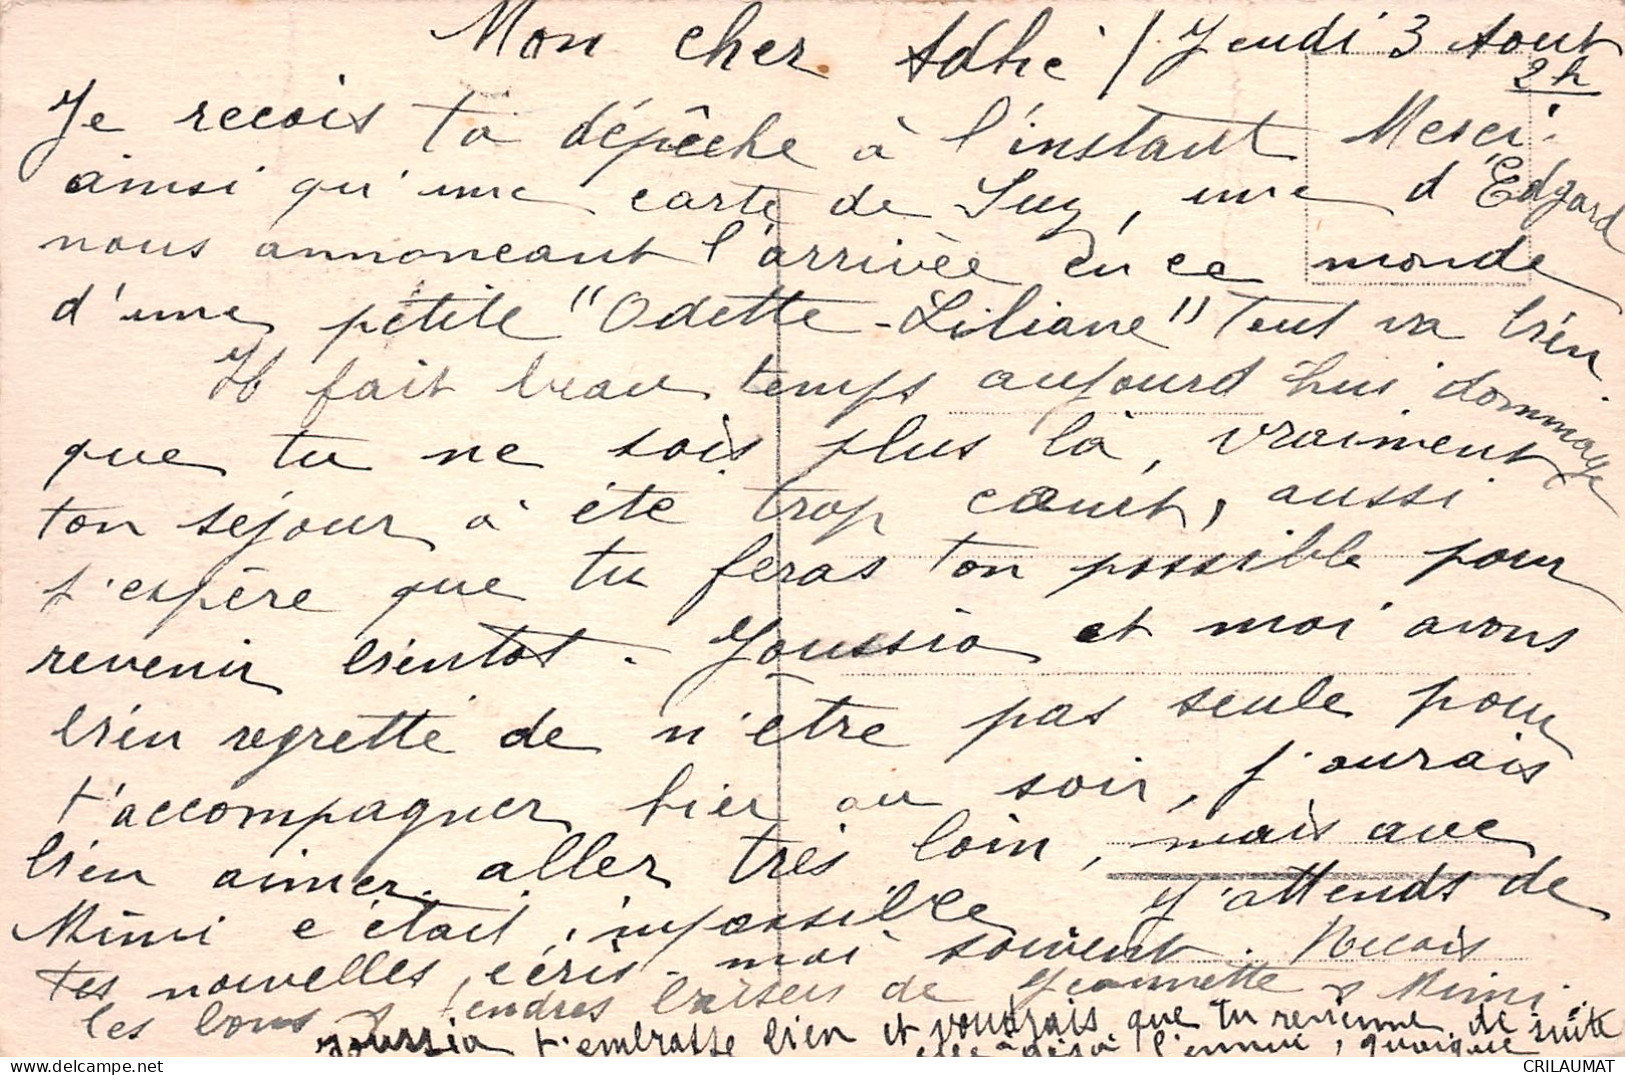 Mon cher Adhé / Jeudi 3 Aout
2h
Je recois ta dépêche à l'instant Merci.
ainsi qu'une carte de Suz, une d'Edgard
nous annoncant l'arrivée en ce monde
d'une petite "Odette-Liliane" Tout va bien
Il fait beau temps aujourd'hui dommage
que tu ne sois plus là, vraiment
ton séjour à été trop court, aussi
j'espère que tu feras ton possible pour
revenir bientot. Youssia et moi avons
bien regretté de n'être pas seule pour
t'accompagner hier au soir, j'aurais
bien aimer aller très loin, mais avec
Mimi c'était impossible J'attends de
tes nouvelles, écris-moi souvent. Recois
les bons & tendres baisers de Jeannette & Mimi
Youssia t'embrasse bien et voudrais que tu revienne de suite
déjà l'ennui, quoique
CRILAUMAT